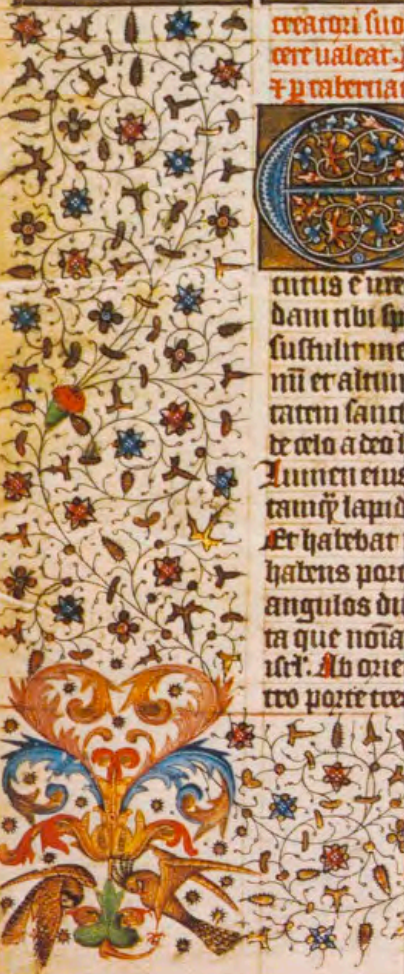 creatori suo
cere ualeat.
E
cutus ē
dam tibi sp
sustulit me
nū et altum
tatem sanct
de celo a deo
Lumen eius
tamq̄ lapid
Et habebat
habens port
angulos du
ta que noīa
isrl'. Ab orie
tro porte tre